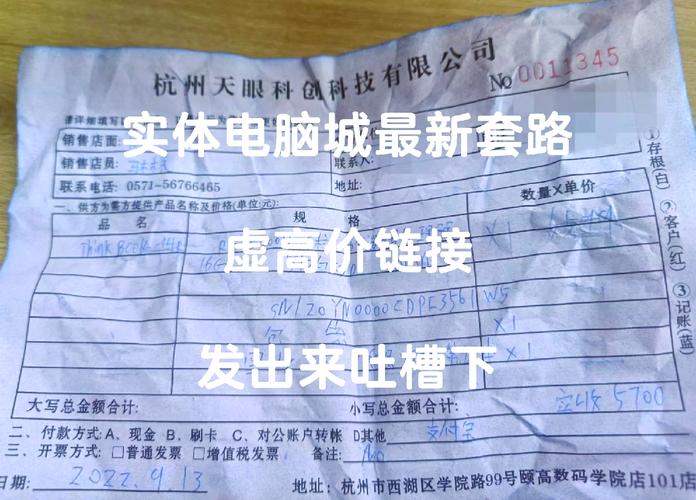 杭州天眼科创科技有限公司
No 0011345
请详细填写以
实体电脑城最新套路
销售店面:
销售店员:
联系人:
联系电话: 0571-56766465
地址:
一、供方为需方提供产品名称及价格(单位:元):
品 名 规 格 数量X单价
ThinkBook X1
虚高价链接
16G
SN/20YN0000CDPE3561W5
X1
包
X1
发出来吐槽下
大写总金额合计: 小写总金额合计: 实收5700
二、付款方式: A、现金 B、刷卡 C、对公账户转帐 D其他 支付宝
三、开票方式: □普通发票 □增值税发票: 备注: No
日期: 2022.9.13 地址: 杭州市西湖区学院路99号颐高数码学院店101店
①存根(白) ②客户(红) ③记账(蓝)